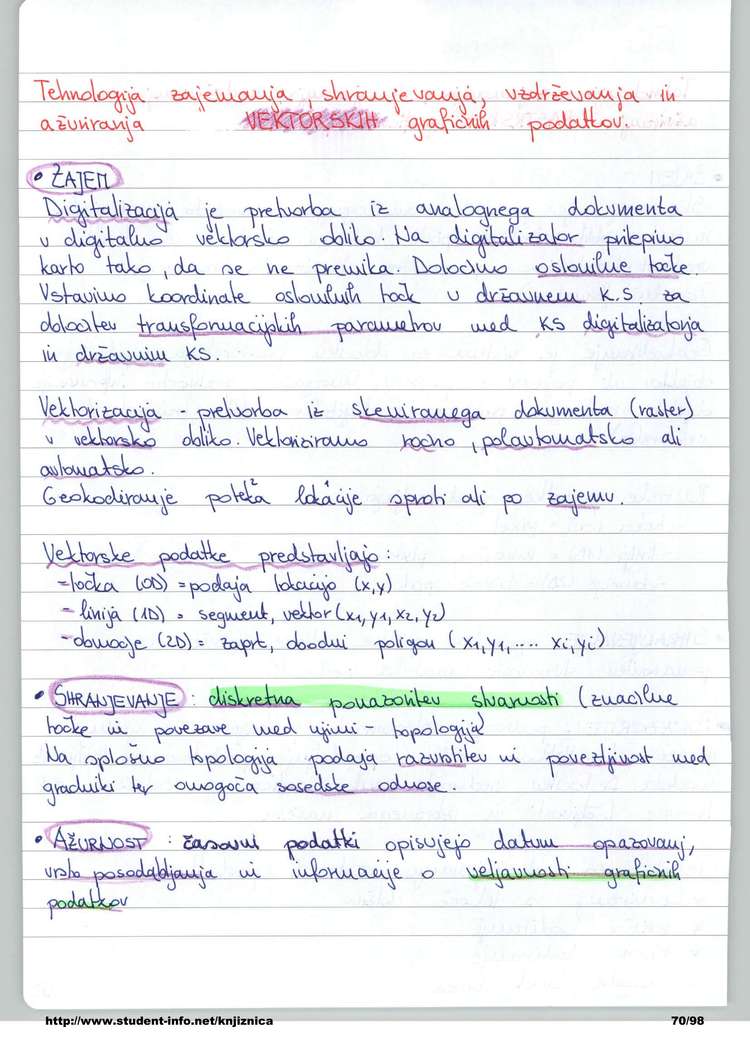 Tehnologija zajemanja, shranjevanja, vzdrževanja in
ažuriranja VEKTORSKIH grafičnih podatkov.
• ZAJEM
Digitalizacija je pretvorba iz analognega dokumenta
v digitalno vektorsko obliko. Na digitalizator prilepimo
karto tako, da se ne premika. Določimo oslonilne točke.
Vstavimo koordinate oslonilnih točk v državnem K.S. za
določitev transformacijskih parametrov med KS digitalizatorja
in državnim KS.
Vektorizacija - pretvorba iz skeniranega dokumenta (raster)
v vektorsko obliko. Vektoriziramo ročno, polavtomatsko ali
avtomatsko.
Geokodiranje poteka lokacije sproti ali po zajemu.
Vektorske podatke predstavljajo:
- točka (0D) = podaja lokacijo (x,y)
- linija (1D) = segment, vektor (x1, y1, x2, y2)
- območje (2D) = zaprt, obodni poligon (x1, y1, .... xi, yi)
• SHRANJEVANJE: diskretna ponazoritev stvarnosti (značilne
točke in povezave med njimi - topologija)
Na splošno topologija podaja razvrstitev in povezljivost med
gradniki ter omogoča sosedske odnose.
• AŽURNOST: časovni podatki opisujejo datum opazovanj,
vrsto posodabljanja in informacije o veljavnosti grafičnih
podatkov
http://www.student-info.net/knjiznica 70/98